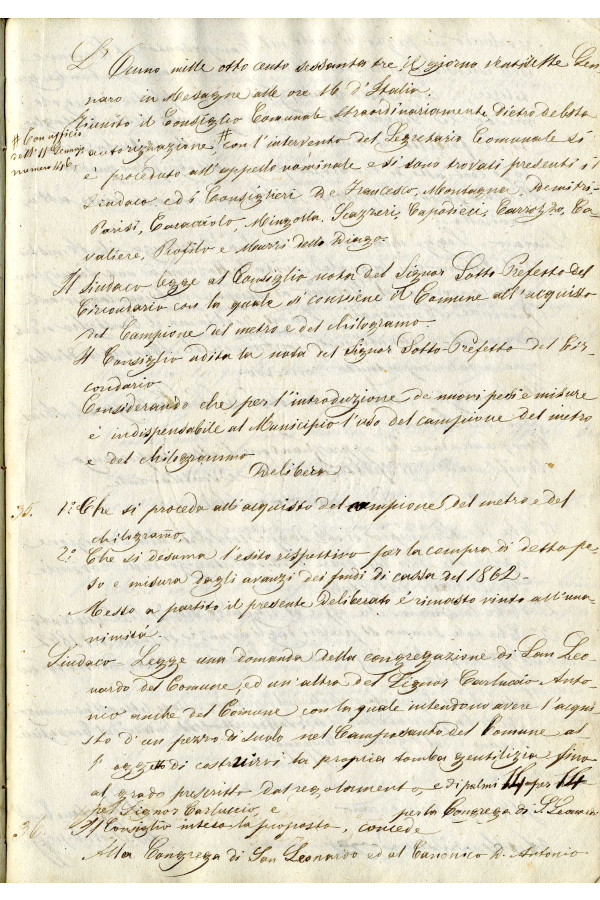 L'Anno mille otto cento sessanta tre, il giorno ventisette Gen-
naro in Mesagne alle ore 16 d'Italia.
Riunito il Consiglio Comunale straordinariamente, Dietro debita
# Con officio
dell'11 Gennajo
numero 146
autorizzazione # con l'intervento del Segretario Comunale si
è proceduto all'appello nominale e si sono trovati presenti il
Sindaco, ed i Consiglieri De Francesco, Montagna, Demitri,
Parisi, Caracciolo, Minzolla, Scazzeri, Capodieci, Carrozzo, Ca-
valiere, Profilo e Murri dello Diago.
Il Sindaco legge al Consiglio nota del Signor Sotto-Prefetto del
Circondario con la quale si consiene il Comune all'acquisto
del Campione del metro e del chilogramo.
Il Consiglio udita la nota del Signor Sotto-Prefetto del Cir-
condario
Considerando che per l'introduzione de' nuovi pesi e misure
è indispensabile al Municipio l'uso del campione del metro
e del chilogrammo
Delibera
35. 1.° Che si proceda all'acquisto del campione del metro e del
chilogramo.
2.° Che si desuma l'esito rispettivo per la compra di detto pe-
so e misura dagli avanzi dei fondi di cassa del 1862.
Messo a partito il presente Deliberato è rimasto vinto all'una-
nimità.
Sindaco - Legge una domanda della congregazione di San Leo-
nardo del Comune, ed un'altra del Signor Carluccio Anto-
nio anche del Comune con la quale intendono avere l'acqui-
sto d'un pezzo di suolo nel Camposanto del Comune al
l'oggetto di costruirvi la propria tomba gentilizia fino
al grado prescritto dal regolamento, e di palmi 14 per 14
pel Signor Carluccio, e per la Congrega di S. Leonardo
36. Il Consiglio intesa la proposta, concede
Alla Congrega di San Leonardo ed al Canonico D. Antonio